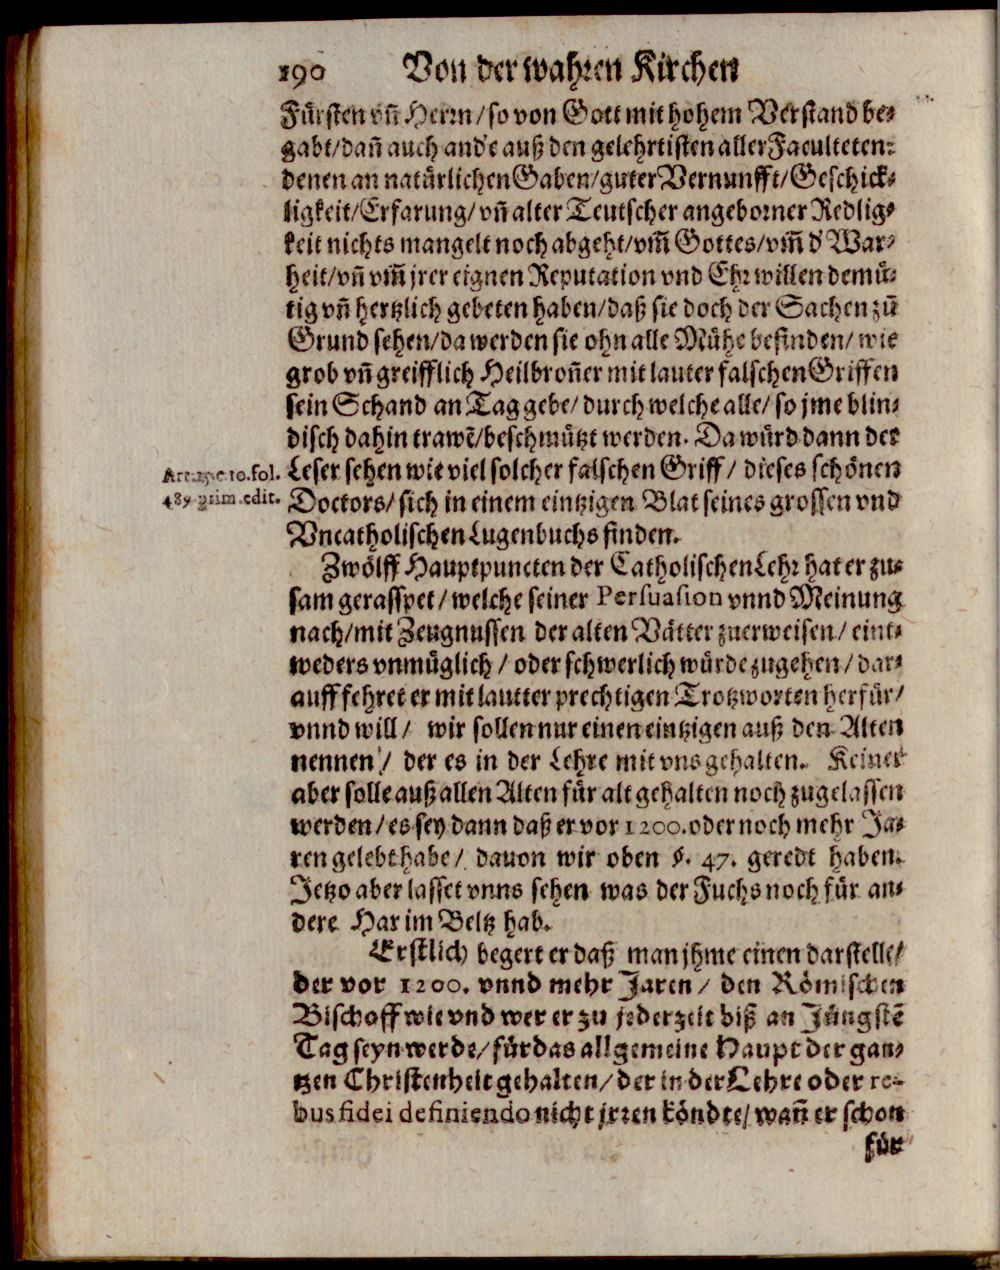 190 Von der wahren Kirchen
Fürsten vñ Herrn/so von Gott mit hohem Verstand be⸗
gabt/dañ auch and'e auß den gelehrtisten aller Faculteten:
denen an natürlichen Gaben/guter Vernunfft/Geschick⸗
ligkeit/Erfarung/vñ alter Teutscher angeborner Redlig⸗
keit nichts mangelt noch abgeht/vm̃ Gottes/vm̃ d' War⸗
heit/vñ vm̃ jrer eignen Reputation vnd Ehr willen demü⸗
tig vñ hertzlich gebeten haben/daß sie doch der Sachen zũ
Grund sehen/da werden sie ohn alle Mühe befinden/wie
grob vñ greifflich Heilbroñer mit lauter falschen Griffen
sein Schand an Tag gebe/durch welche alle/so jme blin⸗
disch dahin trawẽ/beschmützt werden. Da würd dann der
Leser sehen wie viel solcher falschen Griff/ dieses schönen
Doctors/sich in einem eintzigen Blat seines grossen vnd
Vncatholischen Lugenbuchs finden.
c. 10. fol.
489 prim. edit.
Zwölff Hauptpuncten der Catholischen Lehr hat er zu⸗
sam geraspet/welche seiner Persuasion vnnd Meinung
nach/mit Zeugnussen der alten Vätter zuerweisen/eint⸗
weders vnmüglich/ oder schwerlich würde zugehen/dar⸗
auff fehret er mit lautter prechtigen Trotzworten herfür/
vnnd will/ wir sollen nur einen eintzigen auß den Alten
nennen/ der es in der Lehre mit vns gehalten. Keiner
aber solle auß allen Alten für alt gehalten noch zugelassen
werden/es sey dann daß er vor 1200. oder noch mehr Ja⸗
ren gelebt habe/ dauon wir oben §. 47. geredt haben.
Jetzo aber lasset vnns sehen was der Fuchs noch für an⸗
dere Har im Beltz hab.
Erstlich begert er daß man jhme einen darstelle/
der vor 1200. vnnd mehr Jaren/ den Römischen
Bischoff wie vnd wer er zu jederzeit biß an Jüngstẽ
Tag seyn werde/für das allgemeine Haupt der gan⸗
tzen Christenheit gehalten/der in der Lehre oder re-
bus fidei definiendo nicht jrren köndte/wañ er schon
für